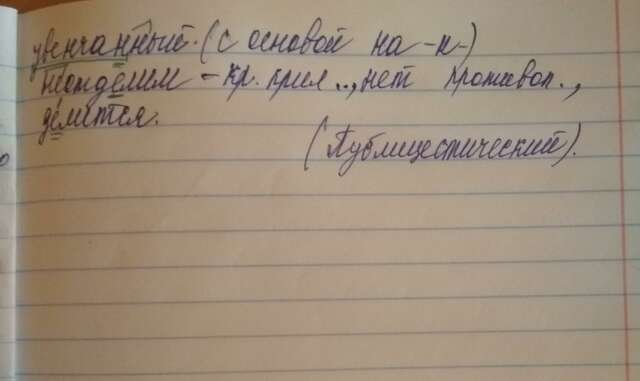 увенчанный. (с основой на -н-)
неотделим - кр. прил.., нет противоп.,
делится.
(Публицистический).